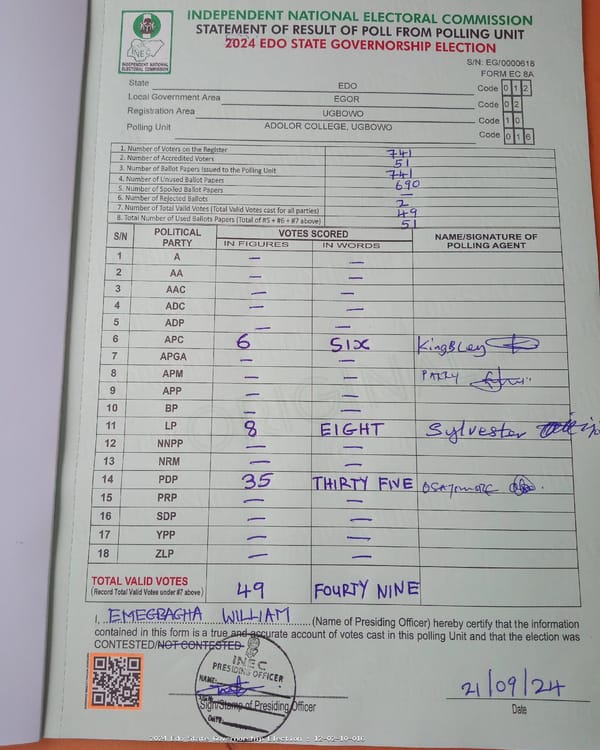 INDEPENDENT NATIONAL ELECTORAL COMMISSION
STATEMENT OF RESULT OF POLL FROM POLLING UNIT
2024 EDO STATE GOVERNORSHIP ELECTION
INEC
INDEPENDENT NATIONAL
ELECTORAL COMMISSION
S/N: EG/0000618
FORM EC 8A
State EDO Code 0 1 2
Local Government Area EGOR Code 0 2
Registration Area UGBOWO Code 1 0
Polling Unit ADOLOR COLLEGE, UGBOWO Code 0 1 6
1. Number of Voters on the Register 741
2. Number of Accredited Voters 51
3. Number of Ballot Papers Issued to the Polling Unit 741
4. Number of Unused Ballot Papers 690
5. Number of Spoiled Ballot Papers —
6. Number of Rejected Ballots 2
7. Number of Total Valid Votes (Total Valid Votes cast for all parties) 49
8. Total Number of Used Ballots Papers (Total of #5 + #6 + #7 above) 51
S/N POLITICAL PARTY VOTES SCORED NAME/SIGNATURE OF POLLING AGENT
IN FIGURES IN WORDS
1 A — —
2 AA — —
3 AAC — —
4 ADC — —
5 ADP — —
6 APC 6 SIX KingBLey
7 APGA — —
8 APM — —
9 APP — —
10 BP — —
11 LP 8 EIGHT Sylvester
12 NNPP — —
13 NRM — —
14 PDP 35 THIRTY FIVE
15 PRP — —
16 SDP — —
17 YPP — —
18 ZLP — —
TOTAL VALID VOTES 49 FOURTY NINE
(Record Total Valid Votes under #7 above)
I, EMEGBAGHA WILLIAM (Name of Presiding Officer) hereby certify that the information
contained in this form is a true and accurate account of votes cast in this polling Unit and that the election was
CONTESTED/NOT CONTESTED
INEC
PRESIDING OFFICER
NAME:
DATE
Sign/Stamp of Presiding Officer
21/09/24
Date
2024 Edo State Governorship Election - 12-02-10-016